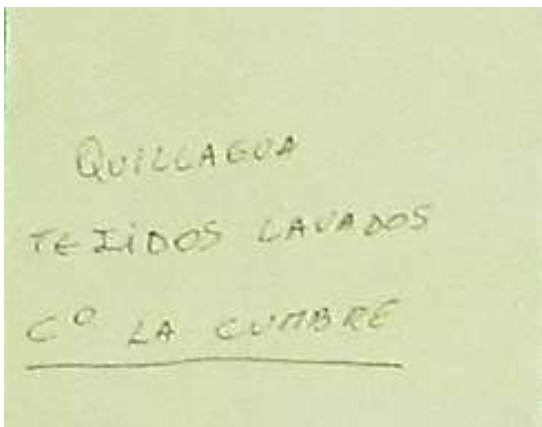 QUILLAGUA
TEJiDOS LAVADOS
Cº LA CUMBRE